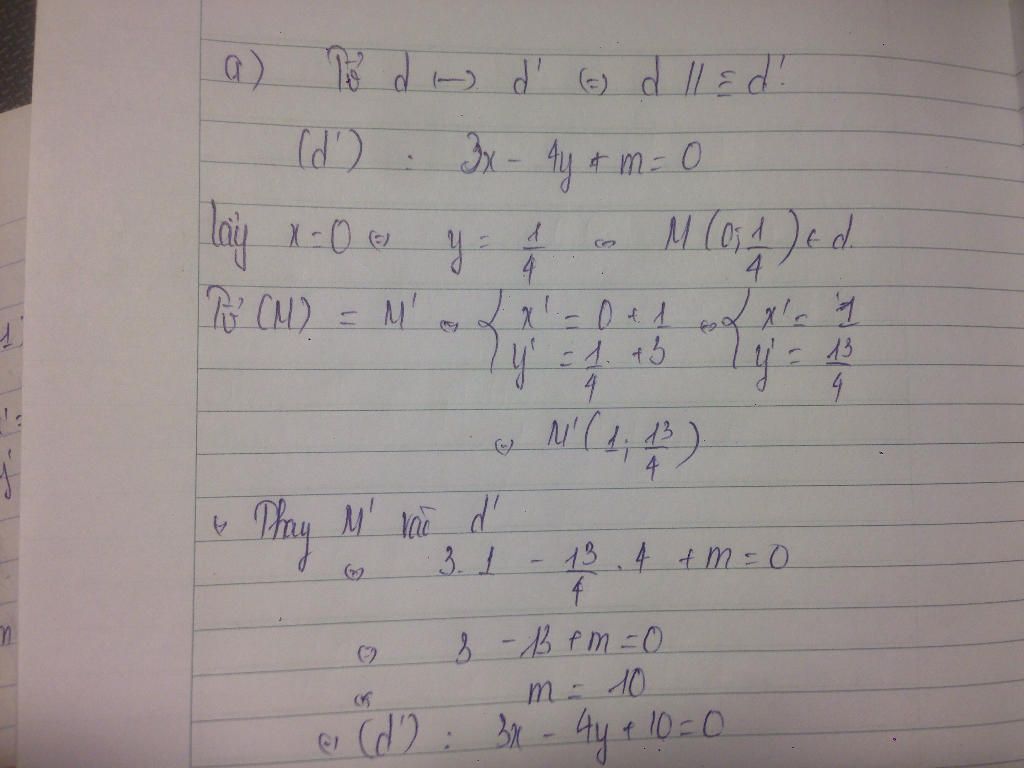 a) Tv⃗ d ↦ d' ⇔ d // ≡ d'.
(d') : 3x - 4y + m = 0
lấy x = 0 ⇔ y = 1/4 ⇔ M(0; 1/4) ∈ d.
Tv⃗ (M) = M' ⇔ { x' = 0 + 1 ; y' = 1/4 + 3 ⇔ { x' = 1 ; y' = 13/4
⇔ M'(1; 13/4)
Thay M' vào d'
⇔ 3.1 - 13/4 . 4 + m = 0
⇔ 3 - 13 + m = 0
⇔ m = 10
⇔ (d') : 3x - 4y + 10 = 0